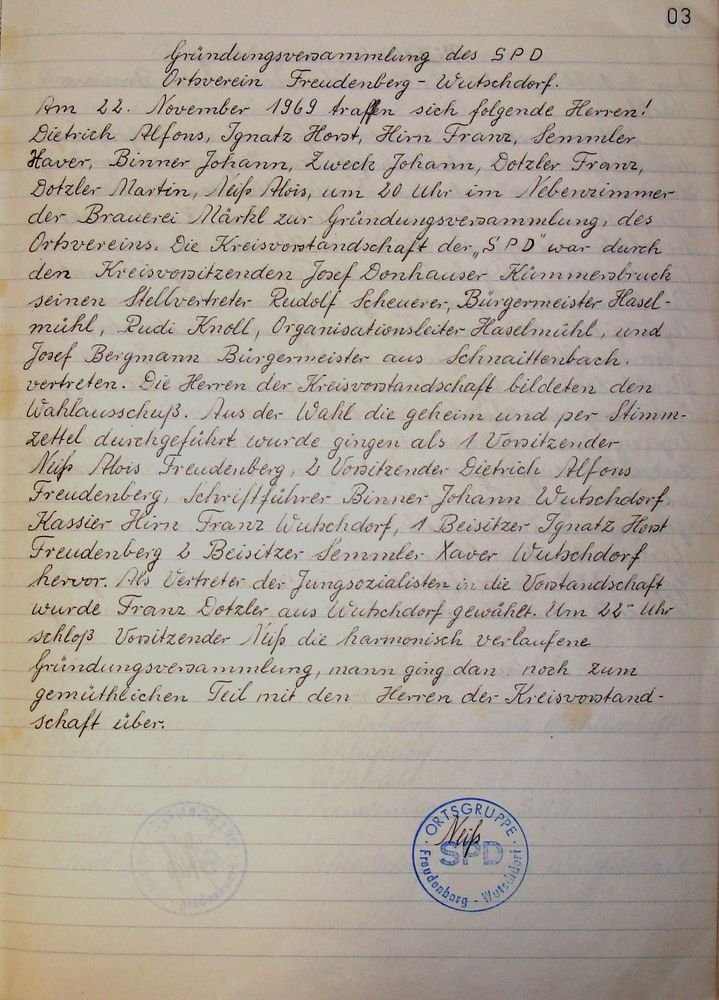 03
Gründungsversammlung des SPD
Ortsverein Freudenberg - Wutschdorf.
Am 22. November 1969 traffen sich folgende Herren!
Dietrich Alfons, Ignatz Horst, Hirn Franz, Semmler
Xaver, Binner Johann, Zweck Johann, Dotzler Franz,
Dotzler Martin, Neiß Alois, um 20 Uhr im Nebenzimmer
der Brauerei Märkl zur Gründungsversammlung, des
Ortsvereins. Die Kreisvorstandschaft der „SPD" war durch
den Kreisvorsitzenden Josef Donhauser Kümmersbruck
seinen Stellvertreter Rudolf Scheuerer, Bürgermeister Hasel-
mühl, Rudi Knoll, Organisationsleiter Haselmühl, und
Josef Bergmann Bürgermeister aus Schnaittenbach.
vertreten. Die Herren der Kreisvorstandschaft bildeten den
Wahlausschuß. Aus der Wahl die geheim und per Stimm-
zettel durchgeführt wurde gingen als 1 Vorsitzender
Neiß Alois Freudenberg, 2 Vorsitzender Dietrich Alfons
Freudenberg, Schriftführer Binner Johann Wutschdorf,
Kassier Hirn Franz Wutschdorf, 1 Beisitzer Ignatz Horst
Freudenberg 2 Beisitzer Semmler Xaver Wutschdorf
hervor. Als Vertreter der Jungsozialisten in die Vorstandschaft
wurde Franz Dotzler aus Wutschdorf gewählt. Um 22 Uhr
schloß Vorsitzender Neiß die harmonisch verlaufene
Gründungsversammlung, mann ging dan noch zum
gemüthlichen Teil mit den Herren der Kreisvorstand-
schaft über.
ORTSGRUPPE
Neiß
SPD
Freudenberg - Wutschdorf